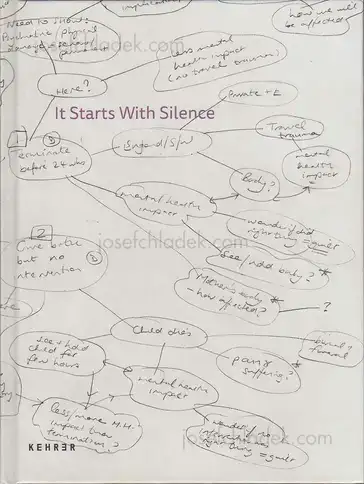 implications
how we will
be affected?
Need to show:
Psychiatric/Physical
damage
less mental
health impact
(no travel trauma)
Here?
Private + E
It Starts With Silence
Travel
trauma
1
Terminate
before 24 wks
England/S/W
mental
health
impact
Body?
mental health
impact
wonder if did
right thing = guilt
2
Give birth
but no
intervention
josefchladek.com
See/hold only? *
Mother's only *
- how affected?
?
Child dies
see & hold
child for
few hours
burial?
funeral
pain *
suffering?
mental health
impact
less/more M.H.
impact than
termination?
wonder if no
intervention
thing = guilt
KEHRER